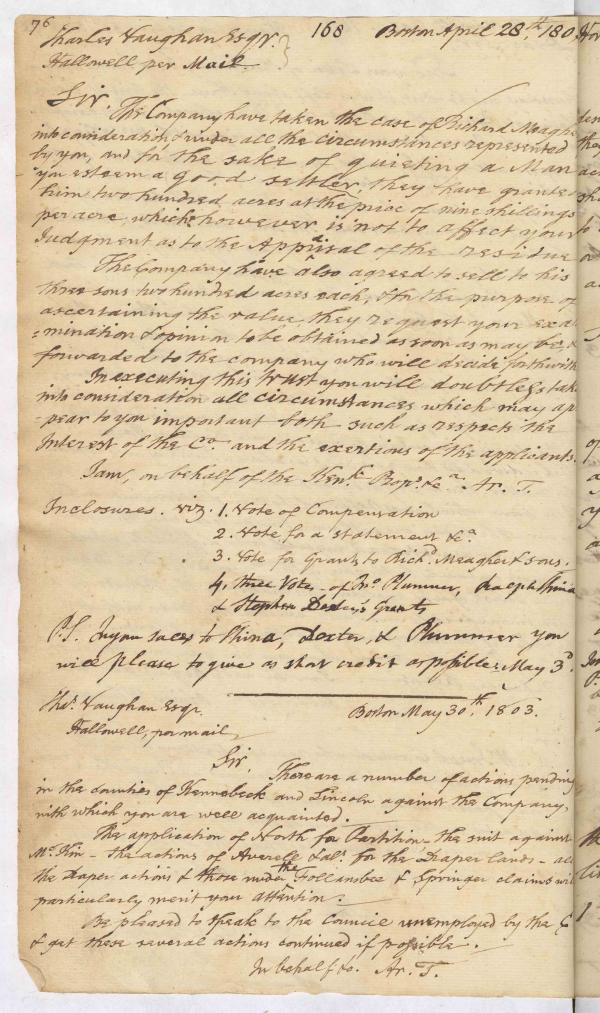 76
168 Boston April 28.th 180
Charles Vaughan Esqr.
Hallowell per Mail.
Sir.
The Company have taken the case of Richard Meaghe
into consideration & under all the circumstances represented
by you, and for the sake of quieting a Man
you esteem a good settler, they have grante
him two hundred acres at the price of nine shillings
per acre, which however is not to affect your
Judgment as to the Appraisal of the residue
The Company have also agreed to sell to his
three sons two hundred acres each, & for the purpose of
ascertaining the value, they request your exa
=mination & opinion to be obtained as soon as may be &
forwarded to the company who will decide forthwith
In executing this trust you will doubtless take
into consideration all circumstances which may ap
-pear to you important both such as respects the
Interest of the Co. and the exertions of the applicants.
I am, on behalf of the Kenk. Props. &ca. Ar. T.
Inclosures. viz. 1. Vote of Compensation
2. Vote for a statement &ca
3. Vote for Grants to Richd. Meagher & sons.
4. three Votes of Jno Plummer, China
& Stephen Dexter's Grants
P.S. In your sales to China, Dexter, & Plummer you
will please to give as short credit as possible. May 3d.
Chs. Vaughan Esqr. Boston May 30.th 1803.
Hallowell, per mail
Sir,
There are a number of actions pending
in the counties of Kennebeck and Lincoln against the Company,
with which you are well acquainted.
The application of North for Partition – the suit against
McKin – the actions of Averell & al. for the Draper lands – all
the Draper actions & those under the Follansbee & Springer claims will
particularly merit your attention.
Be pleased to speak to the Council unemployed by the Co
& get these several actions continued if possible.
In behalf &c. Ar. T.